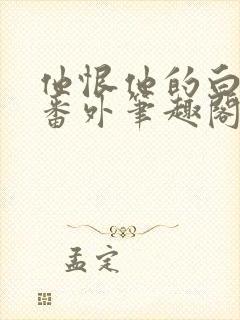 他恨他的白
番外笔趣閣
孟定